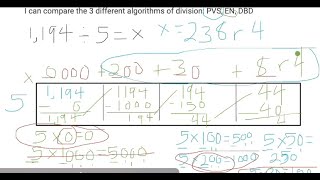 I can compare the 3 different algorithms of division: PVS, EN, DBD
1,194 ÷ 5 = x x = 238 r 4
x 0000 + 200 + 30 + 8 r 4
5 1,194 1194 194 44
- 0 - 1000 - 150 - 40
1,194 194 44 4
5 x 0 = 0 5 x 100 = 500 5 x 50 =
5 x 1000 = 5000 5 x 200 = 1000 250